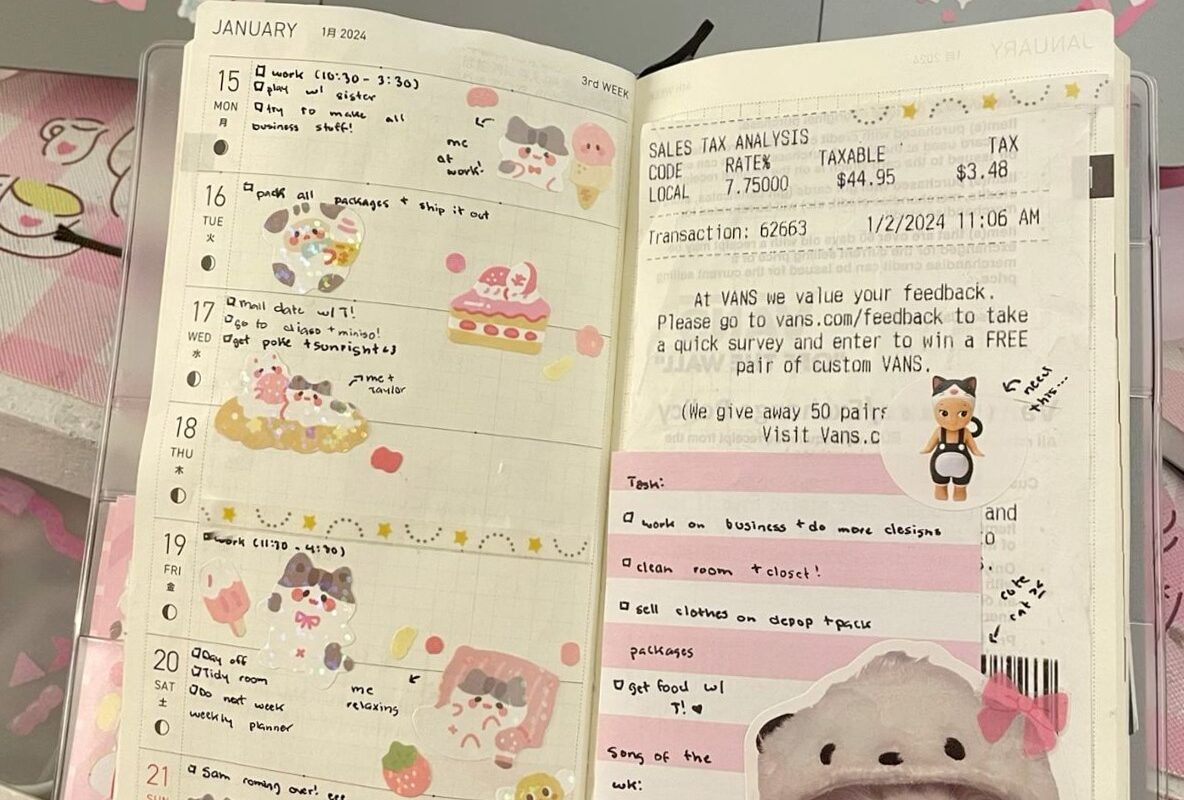 JANUARY 1月 2024
3rd WEEK
15
MON
月
work (10:30 - 3:30)
play w/ sister
try to make all
business stuff!
me
at
work!
16
TUE
火
pack all packages + ship it out
17
WED
水
mail date w/ T!
go to diaso + miniso!
get poke + sunright <3
me +
Taylor
18
THU
木
19
FRI
金
work (11:30 - 4:30)
20
SAT
土
Day off
Tidy room
Do next week
weekly planner
me
relaxing
21
SUN
Sam coming over!
SALES TAX ANALYSIS
CODE RATE% TAXABLE TAX
LOCAL 7.75000 $44.95 $3.48
Transaction: 62663 1/2/2024 11:06 AM
At VANS we value your feedback.
Please go to vans.com/feedback to take
a quick survey and enter to win a FREE
pair of custom VANS.
(We give away 50 pairs
Visit Vans.c
need
this...
and
Task:
work on business + do more designs
clean room + closet!
sell clothes on depop + pack
packages
get food w/
T! ♥
Song of the
wk:
cute as
cat